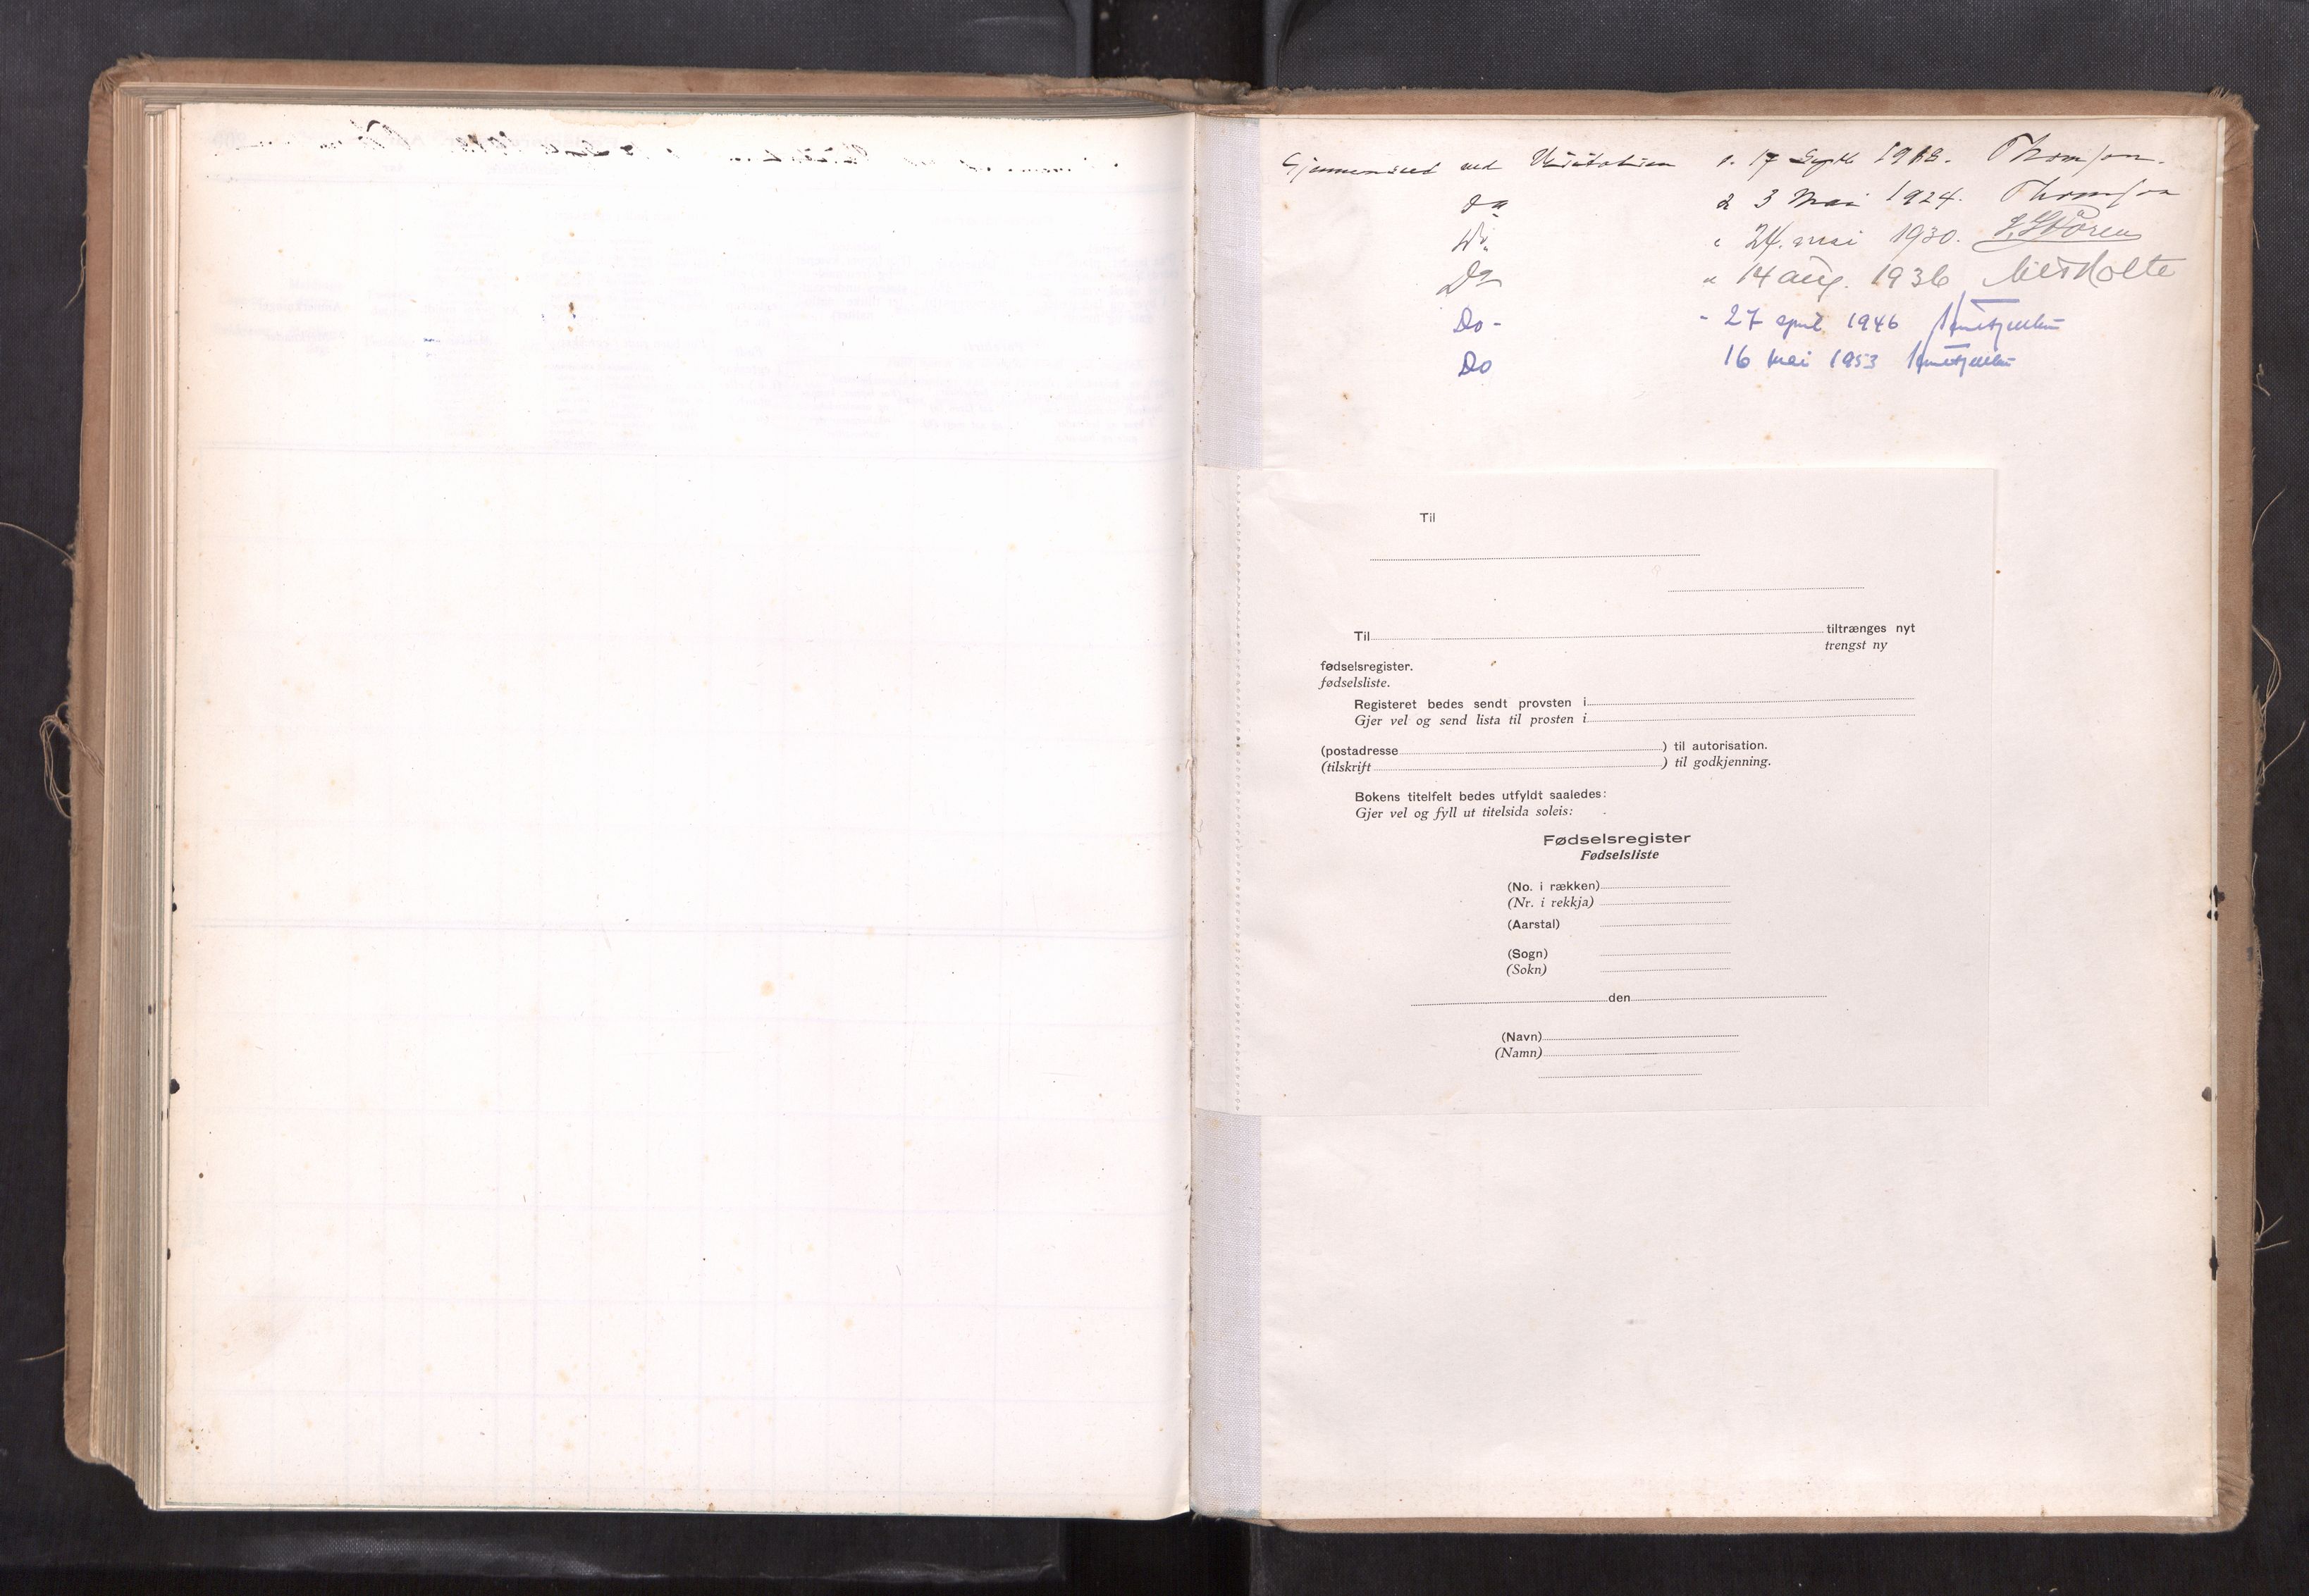 Gjennemseet ved Visitatsen d. 17 Septb 1918. Thomson.
do d 3 Mai 1924. Thomson
Do " 24. mai 1930. S. Støren
Do " 14 aug. 1936
Do - - 27 april 1946
Do 16 mai 1953
Til
Til tiltrænges nyt
trengst ny
fødselsregister.
fødselsliste.
Registeret bedes sendt provsten i
Gjer vel og send lista til prosten i
(postadresse ) til autorisation.
(tilskrift ) til godkjenning.
Bokens titelfelt bedes utfyldt saaledes:
Gjer vel og fyll ut titelsida soleis:
Fødselsregister
Fødselsliste
(No. i rækken)
(Nr. i rekkja)
(Aarstal)
(Sogn)
(Sokn)
den
(Navn)
(Namn)